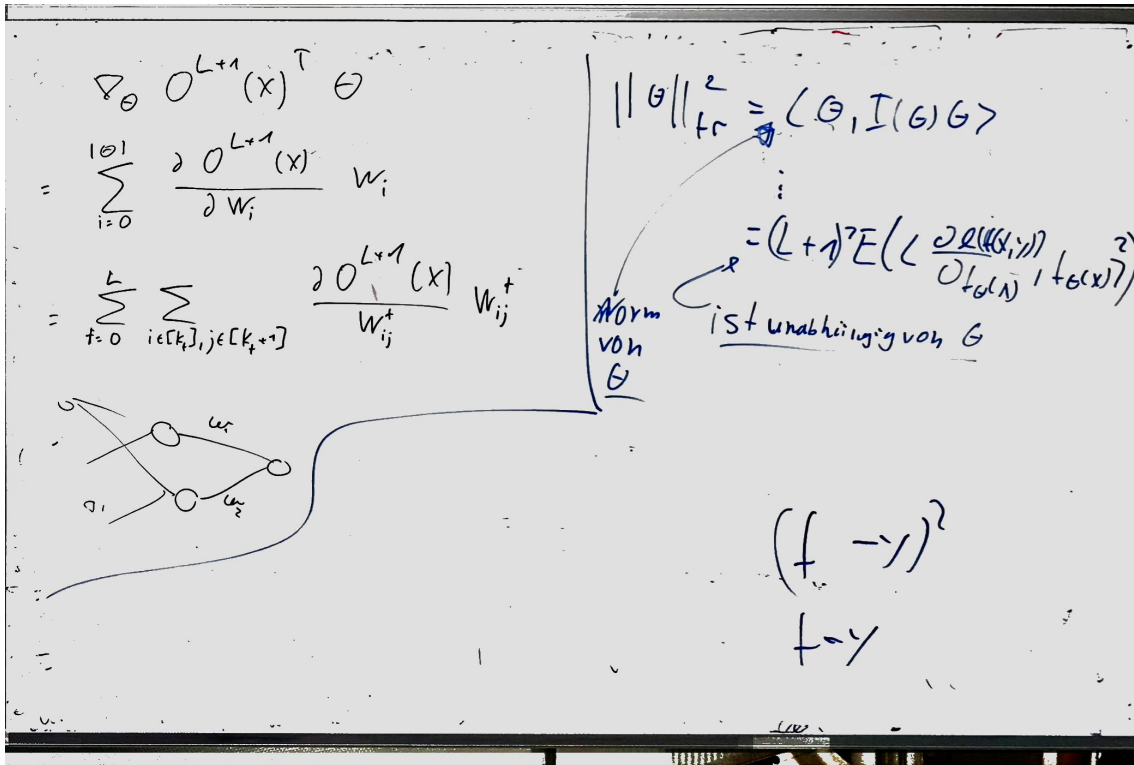 ∇_Θ O^{L+1}(x)^T Θ
= Σ_{i=0}^{|Θ|} ∂O^{L+1}(x) / ∂W_i W_i
= Σ_{t=0}^{L} Σ_{i∈[k_t], j∈[k_t+1]} ∂O^{L+1}(x) / W_{ij}^t W_{ij}^t
w_1
w_2
||Θ||²_{fr} = ⟨Θ, I(Θ)Θ⟩
⋮
= (L+1)² E(⟨ ∂ℓ(f(x,y)) / ∂f_Θ(x) , f_Θ(x)⟩²)
Norm
von
Θ
ist unabhängig von Θ
(f -y)²
f-y